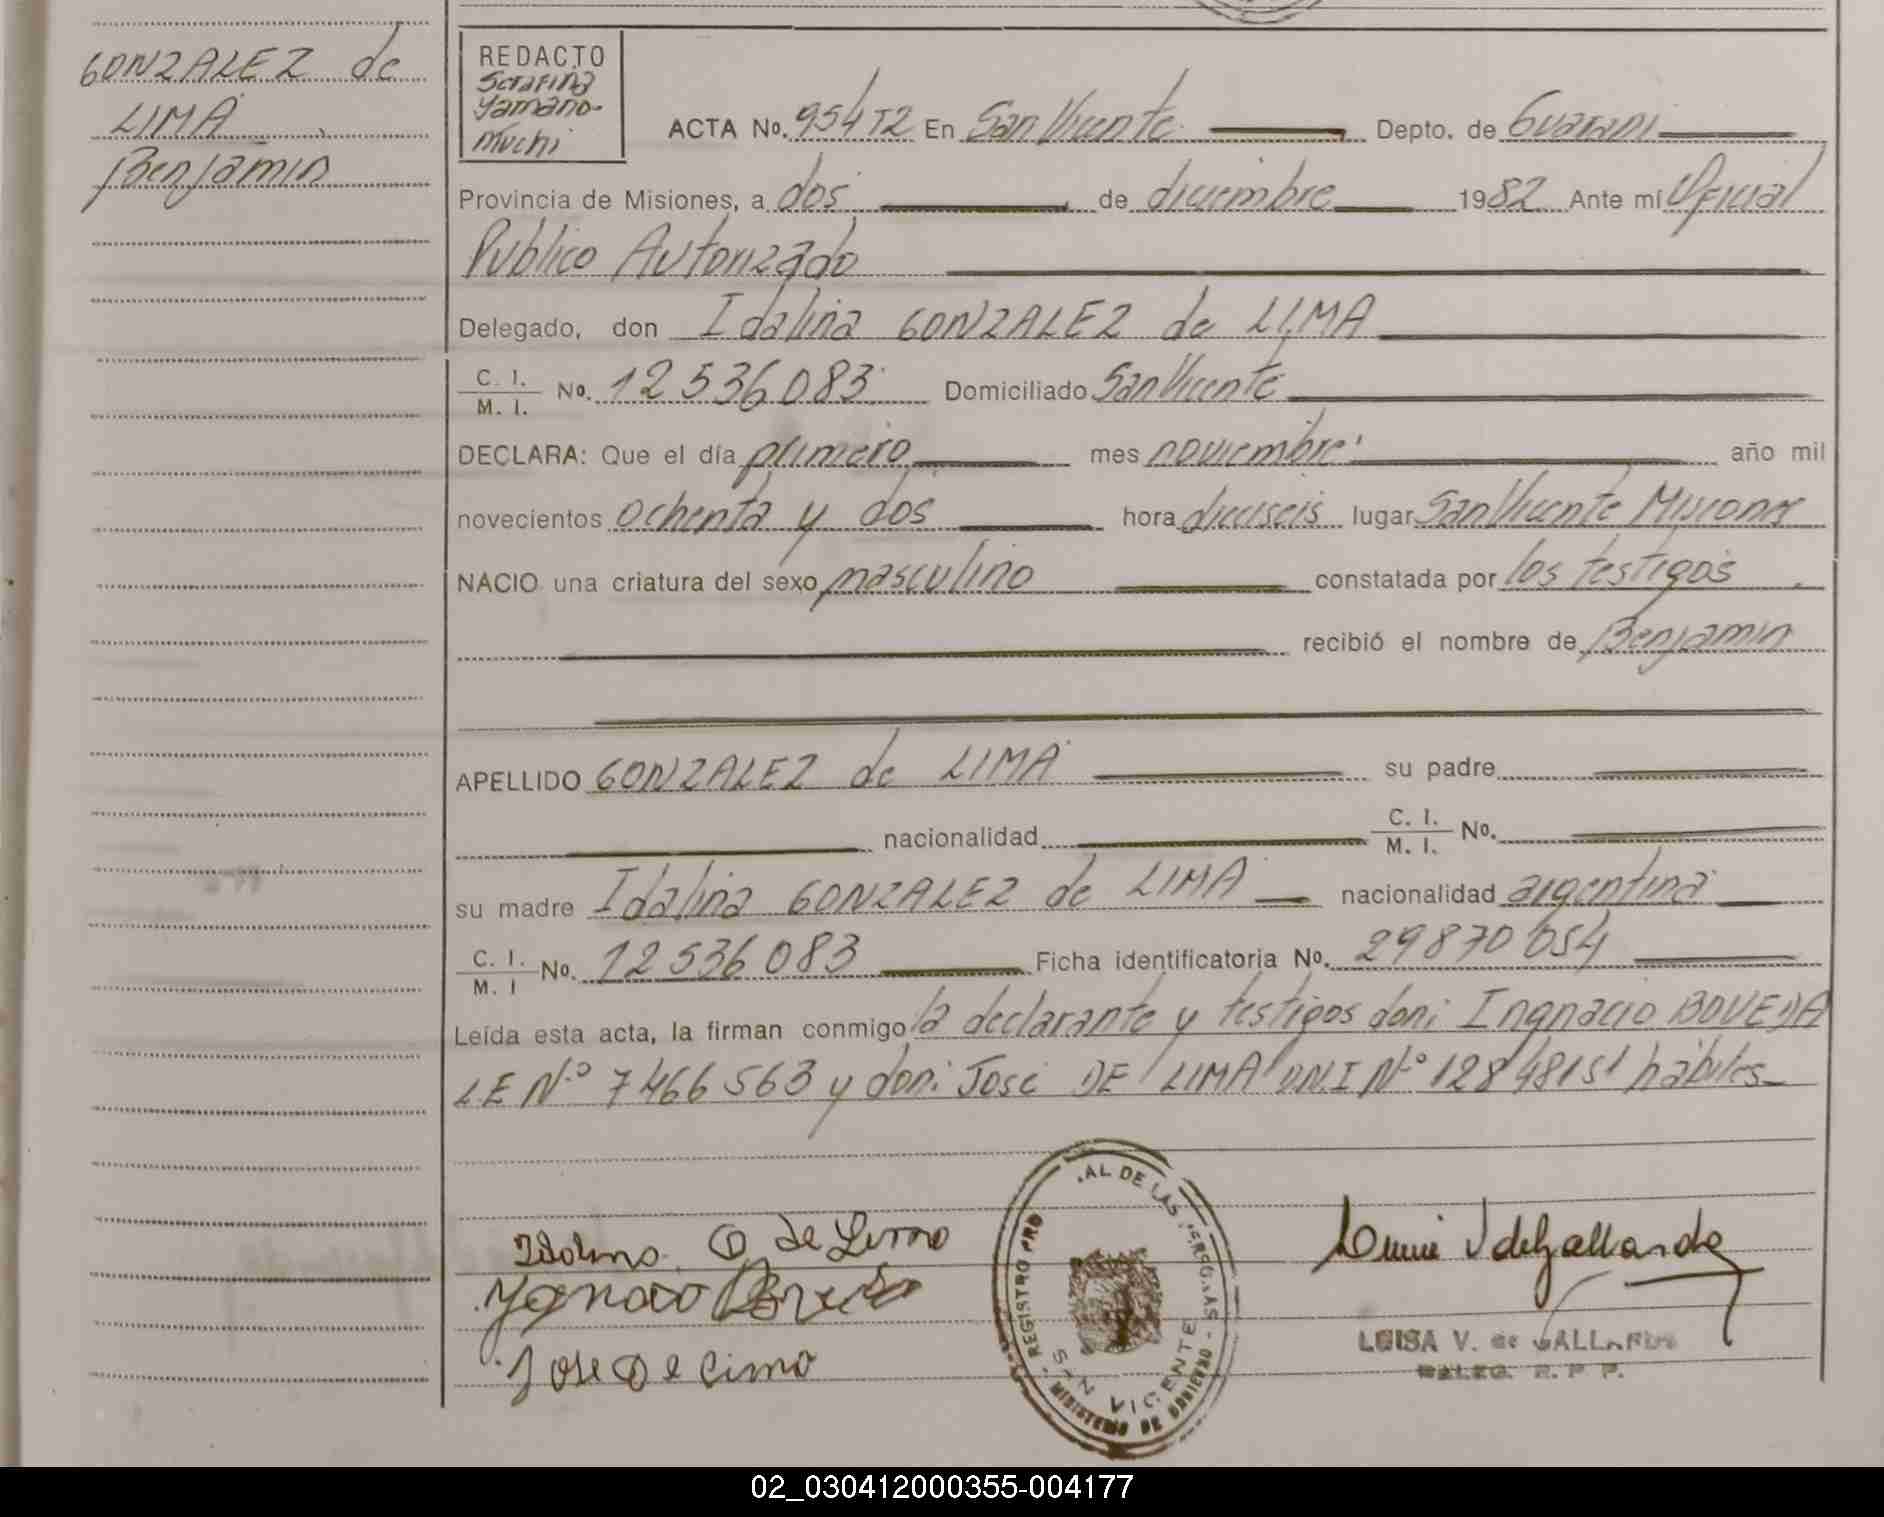 GONZALEZ de
LIMA
Benjamin
REDACTO
Serafina
Yamano-
muchi
ACTA No. 954 T2 En San Vicente Depto. de Guarani
Provincia de Misiones, a dos de diciembre 1982 Ante mi Oficial
Publico Autorizado
Delegado, don Idalina GONZALEZ de LIMA
C. I. / M. I. No. 12536083 Domiciliado San Vicente
DECLARA: Que el día primero mes noviembre año mil
novecientos ochenta y dos hora dieciseis lugar San Vicente Misiones
NACIO una criatura del sexo masculino constatada por los testigos
recibió el nombre de Benjamin
APELLIDO GONZALEZ de LIMA su padre
nacionalidad C. I. / M. I. No.
su madre Idalina GONZALEZ de LIMA nacionalidad argentina
C. I. / M. I No. 12536083 Ficha identificatoria No. 29870054
Leída esta acta, la firman conmigo la declarante y testigos don: Ingnacio BOVEDA
LE N.º 7466563 y don: José DE LIMA DNI Nº 12848151 hábiles
Idalina G de Lima
Jose De Lima
REGISTRO PRO AL DE LAS PERSONAS
SAN VICENTE
MINISTERIO DE GOBIERNO
LUISA V. de GALLARDO
DELEG. R. P. P.
02_030412000355-004177